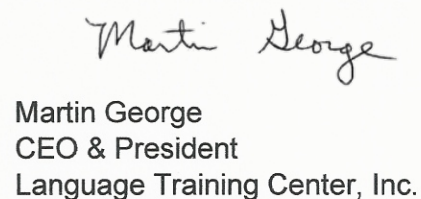 Martin George
Martin George
CEO & President
Language Training Center, Inc.